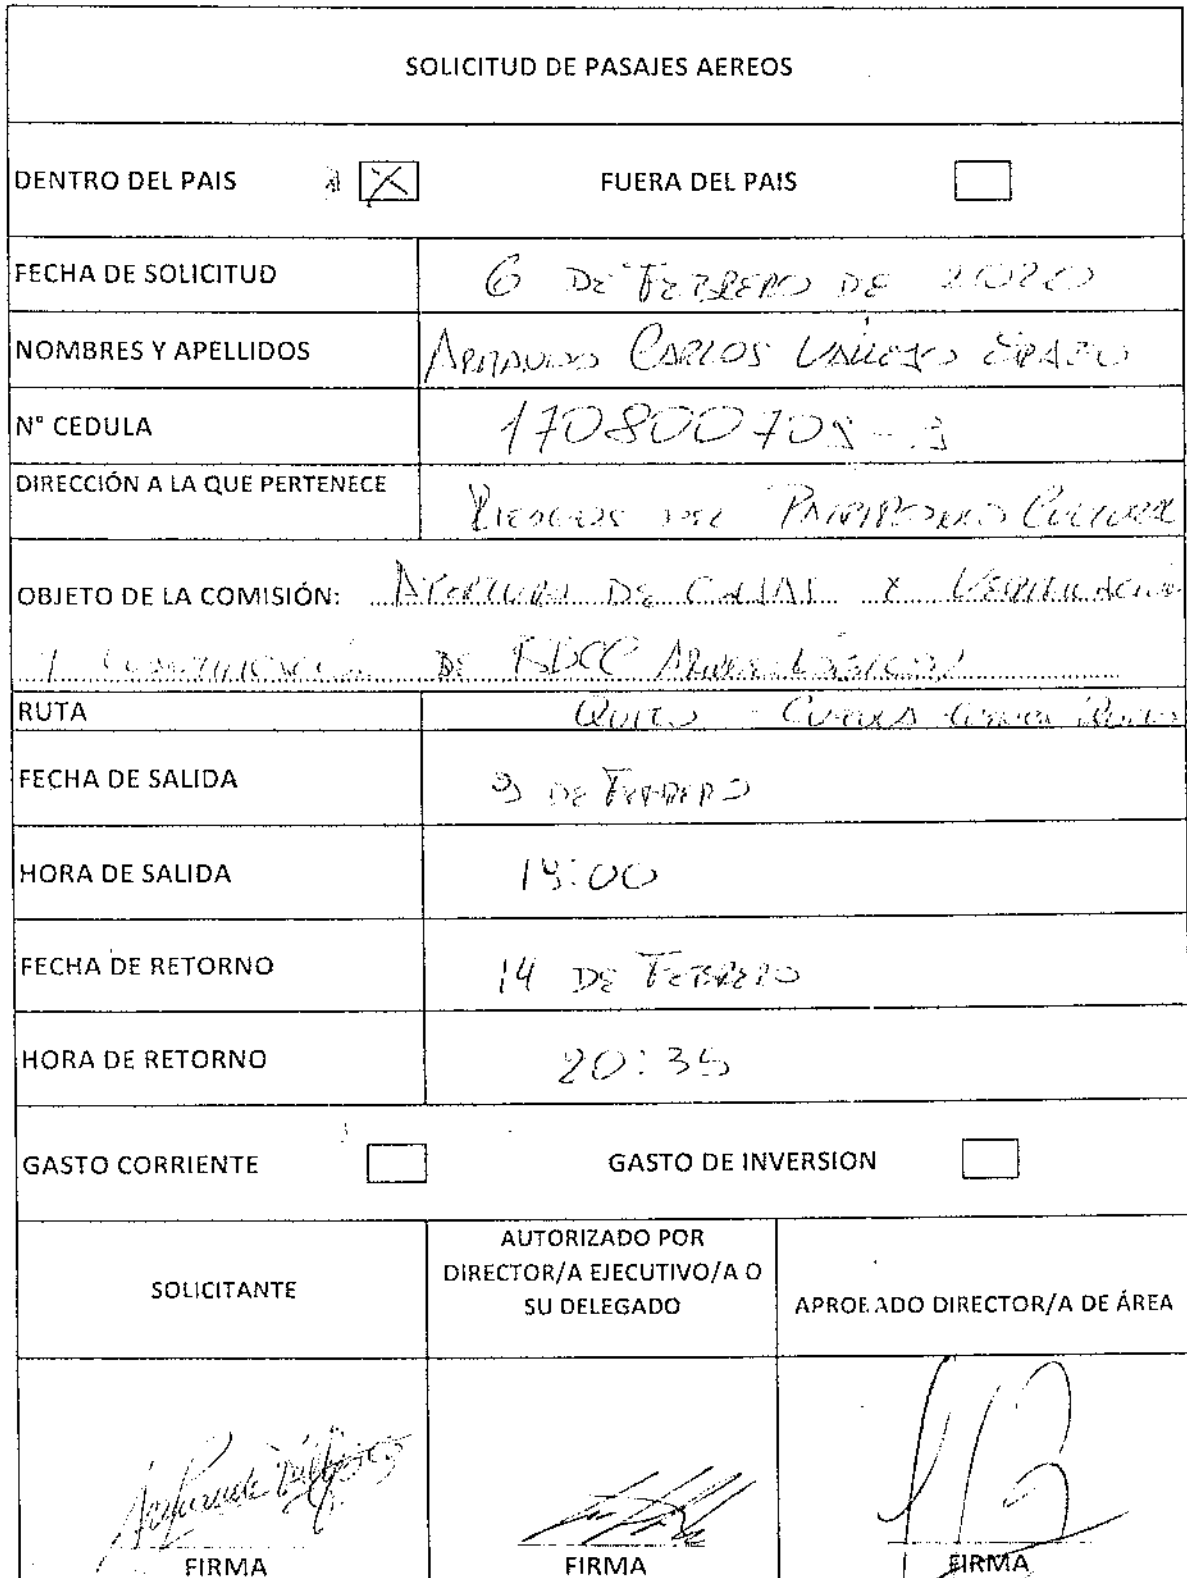 SOLICITUD DE PASAJES AEREOS
DENTRO DEL PAIS X FUERA DEL PAIS
FECHA DE SOLICITUD 6 DE FEBRERO DE 2020
NOMBRES Y APELLIDOS ARMANDO CARLOS VALLEJO
N° CEDULA
DIRECCIÓN A LA QUE PERTENECE RIESGOS DEL PATRIMONIO CULTURAL
OBJETO DE LA COMISIÓN: APERTURA DE CAJAS Y VERIFICACIÓN
DE
RUTA QUITO - CUENCA
FECHA DE SALIDA 9 DE FEBRERO
HORA DE SALIDA
FECHA DE RETORNO 14 DE FEBRERO
HORA DE RETORNO 20:35
GASTO CORRIENTE GASTO DE INVERSION
SOLICITANTE
AUTORIZADO POR
DIRECTOR/A EJECUTIVO/A O
SU DELEGADO
APROBADO DIRECTOR/A DE ÁREA
FIRMA FIRMA FIRMA